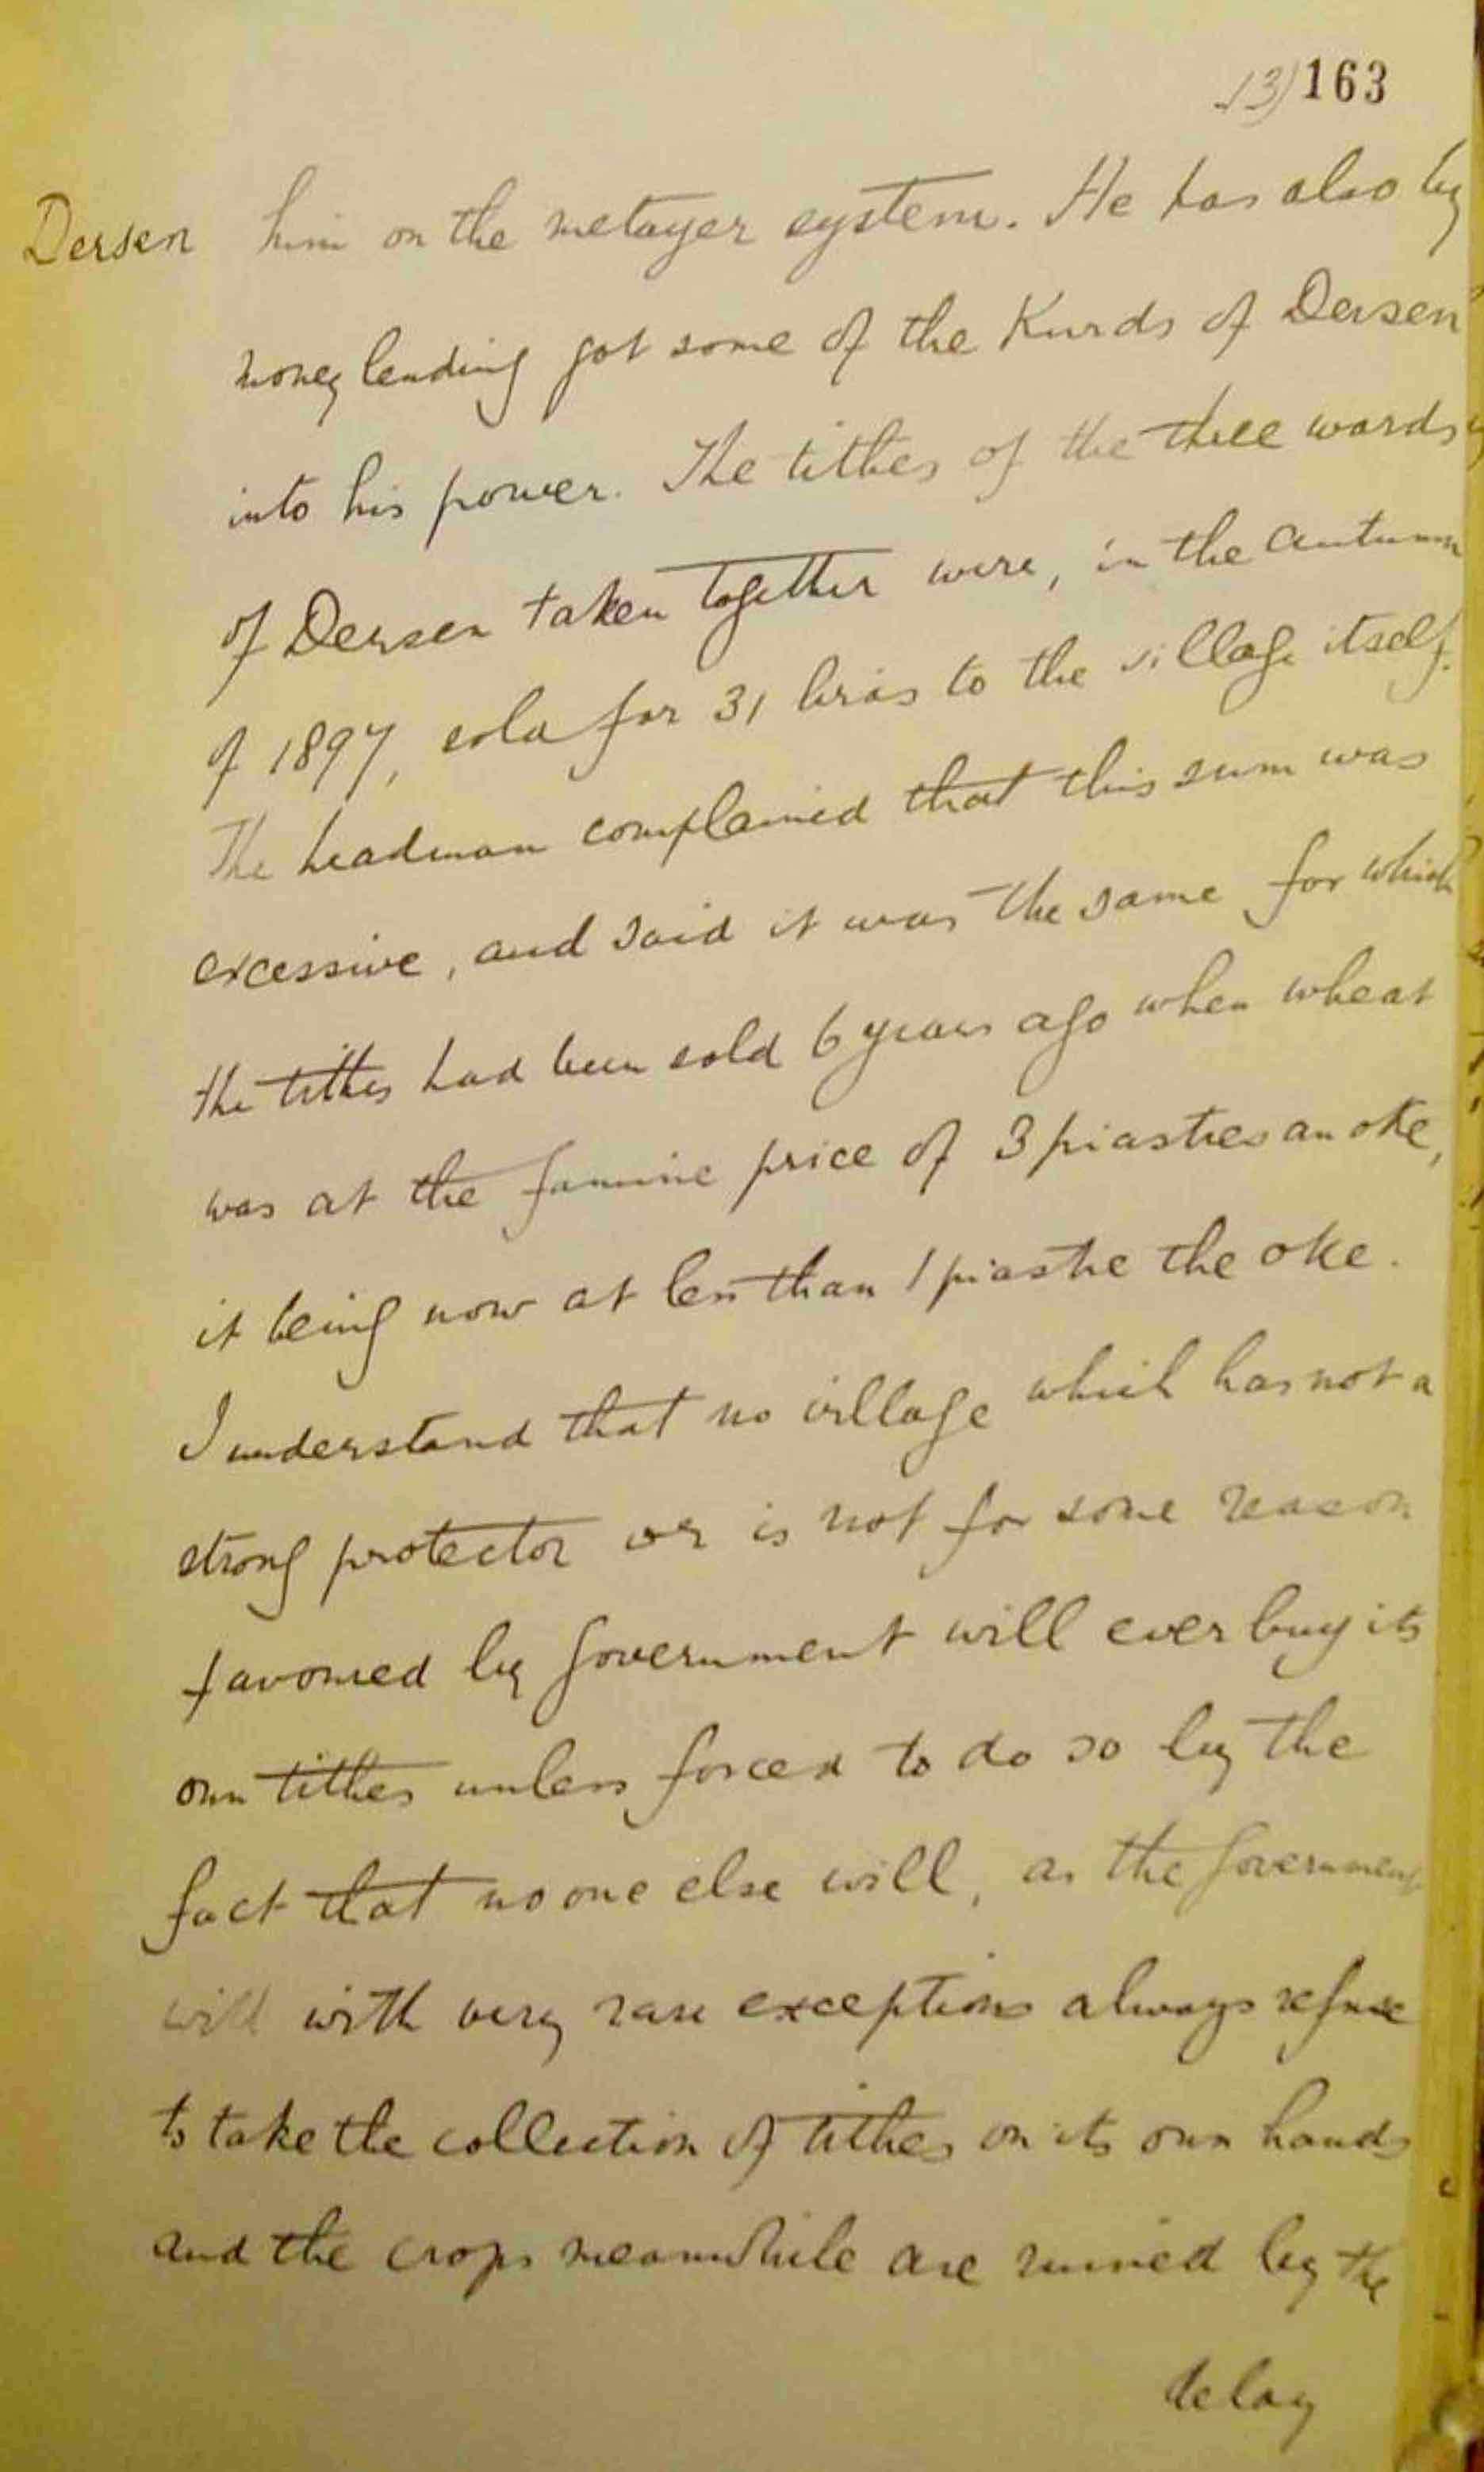 13) 163
Dersen him on the metayer system. He has also by
money lending got some of the Kurds of Dersen
into his power. The tithes of the three wards
of Dersen taken together were, in the autumn
of 1897, sold for 31 liras to the village itself.
The headman complained that this sum was
excessive, and said it was the same for which
the tithes had been sold 6 years ago when wheat
was at the famine price of 3 piastres an oke,
it being now at less than 1 piastre the oke.
I understand that no village which has not a
strong protector or is not for some reason
favoured by Government will ever buy its
own tithes unless forced to do so by the
fact that no one else will, as the Government
will with very rare exceptions always refuse
to take the collection of tithes on its own hands
and the crops meanwhile are ruined by the
delay